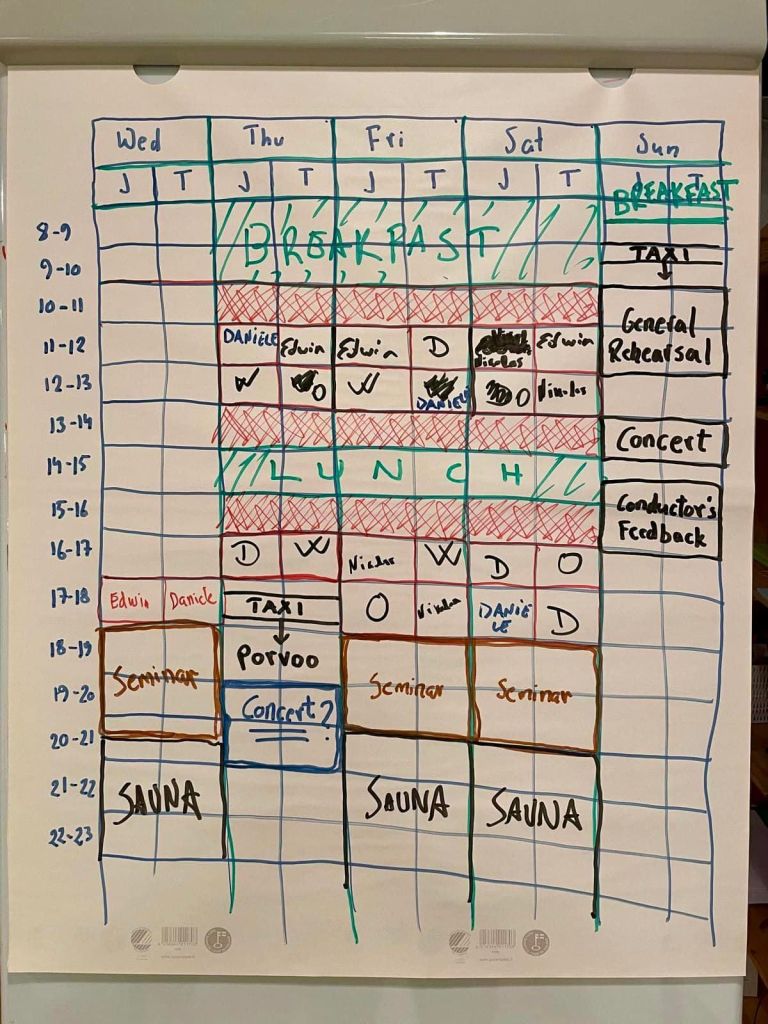 Wed Thu Fri Sat Sun
J T J T J T J T J T
BREAKFAST
8-9
BREAKFAST
TAXI
9-10
10-11
General
Rehearsal
11-12 DANIELE Edwin Edwin D Nicolas Edwin
12-13 W O W DANIELE O Nicolas
13-14
Concert
14-15 LUNCH
15-16
Conductor's
Feedback
16-17 D W Nicolas W D O
17-18 Edwin Daniele TAXI O Nicolas DANIE
LE D
18-19
Porvoo
Seminar Seminar Seminar
19-20
Concert?
20-21
21-22
SAUNA SAUNA SAUNA
22-23